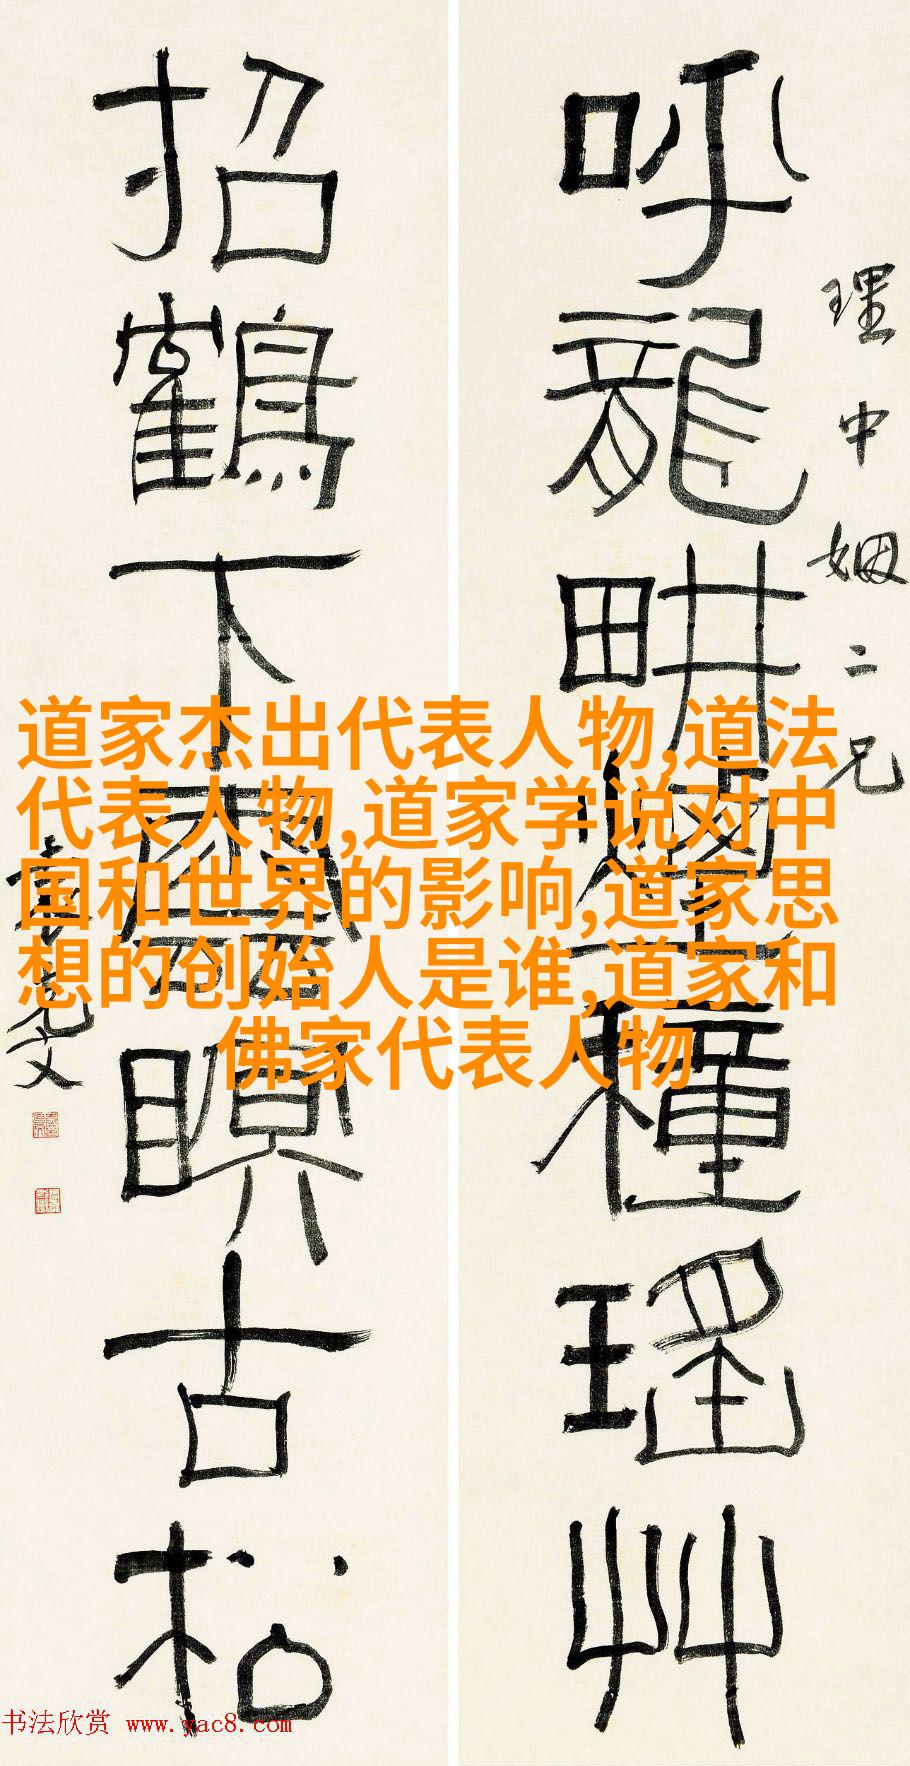 理中姻二兄
呼龍畊煙種瑤艸
招鶴下瞑古松
袁克文
道家杰出代表人物,道法
代表人物,道家学说对中
国和世界的影响,道家思
想的创始人是谁,道家和
佛家代表人物
书法欣赏 www.yac8.com